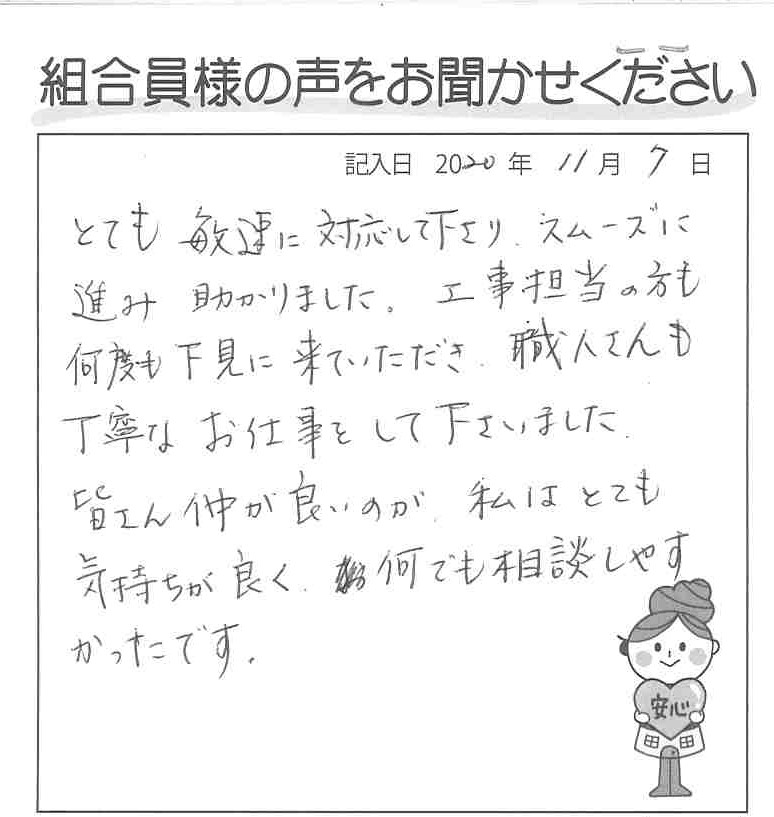 組合員様の声をお聞かせください
記入日 2020年 11月 7日
とても 敏速に 対応して下さり、スムーズに
進み 助かりました。工事担当の方も
何度も下見に来ていただき、職人さんも
丁寧な お仕事をして下さいました。
皆さん仲が良いのが、私はとても
気持ちが良く、何でも相談しやす
かったです。
安心